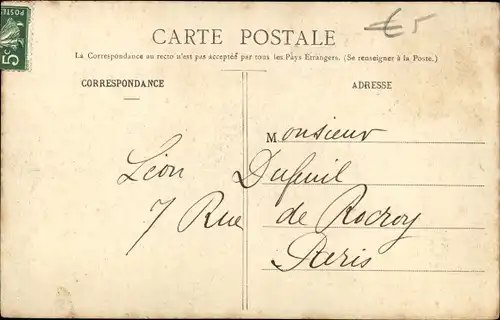 POSTES
5c
€5
CARTE POSTALE
La Correspondance au recto n'est pas acceptée par tous les Pays Etrangers. (Se renseigner à la Poste.)
CORRESPONDANCE
ADRESSE
Monsieur
Léon Dufeuil
7 Rue de Rocroy
Paris